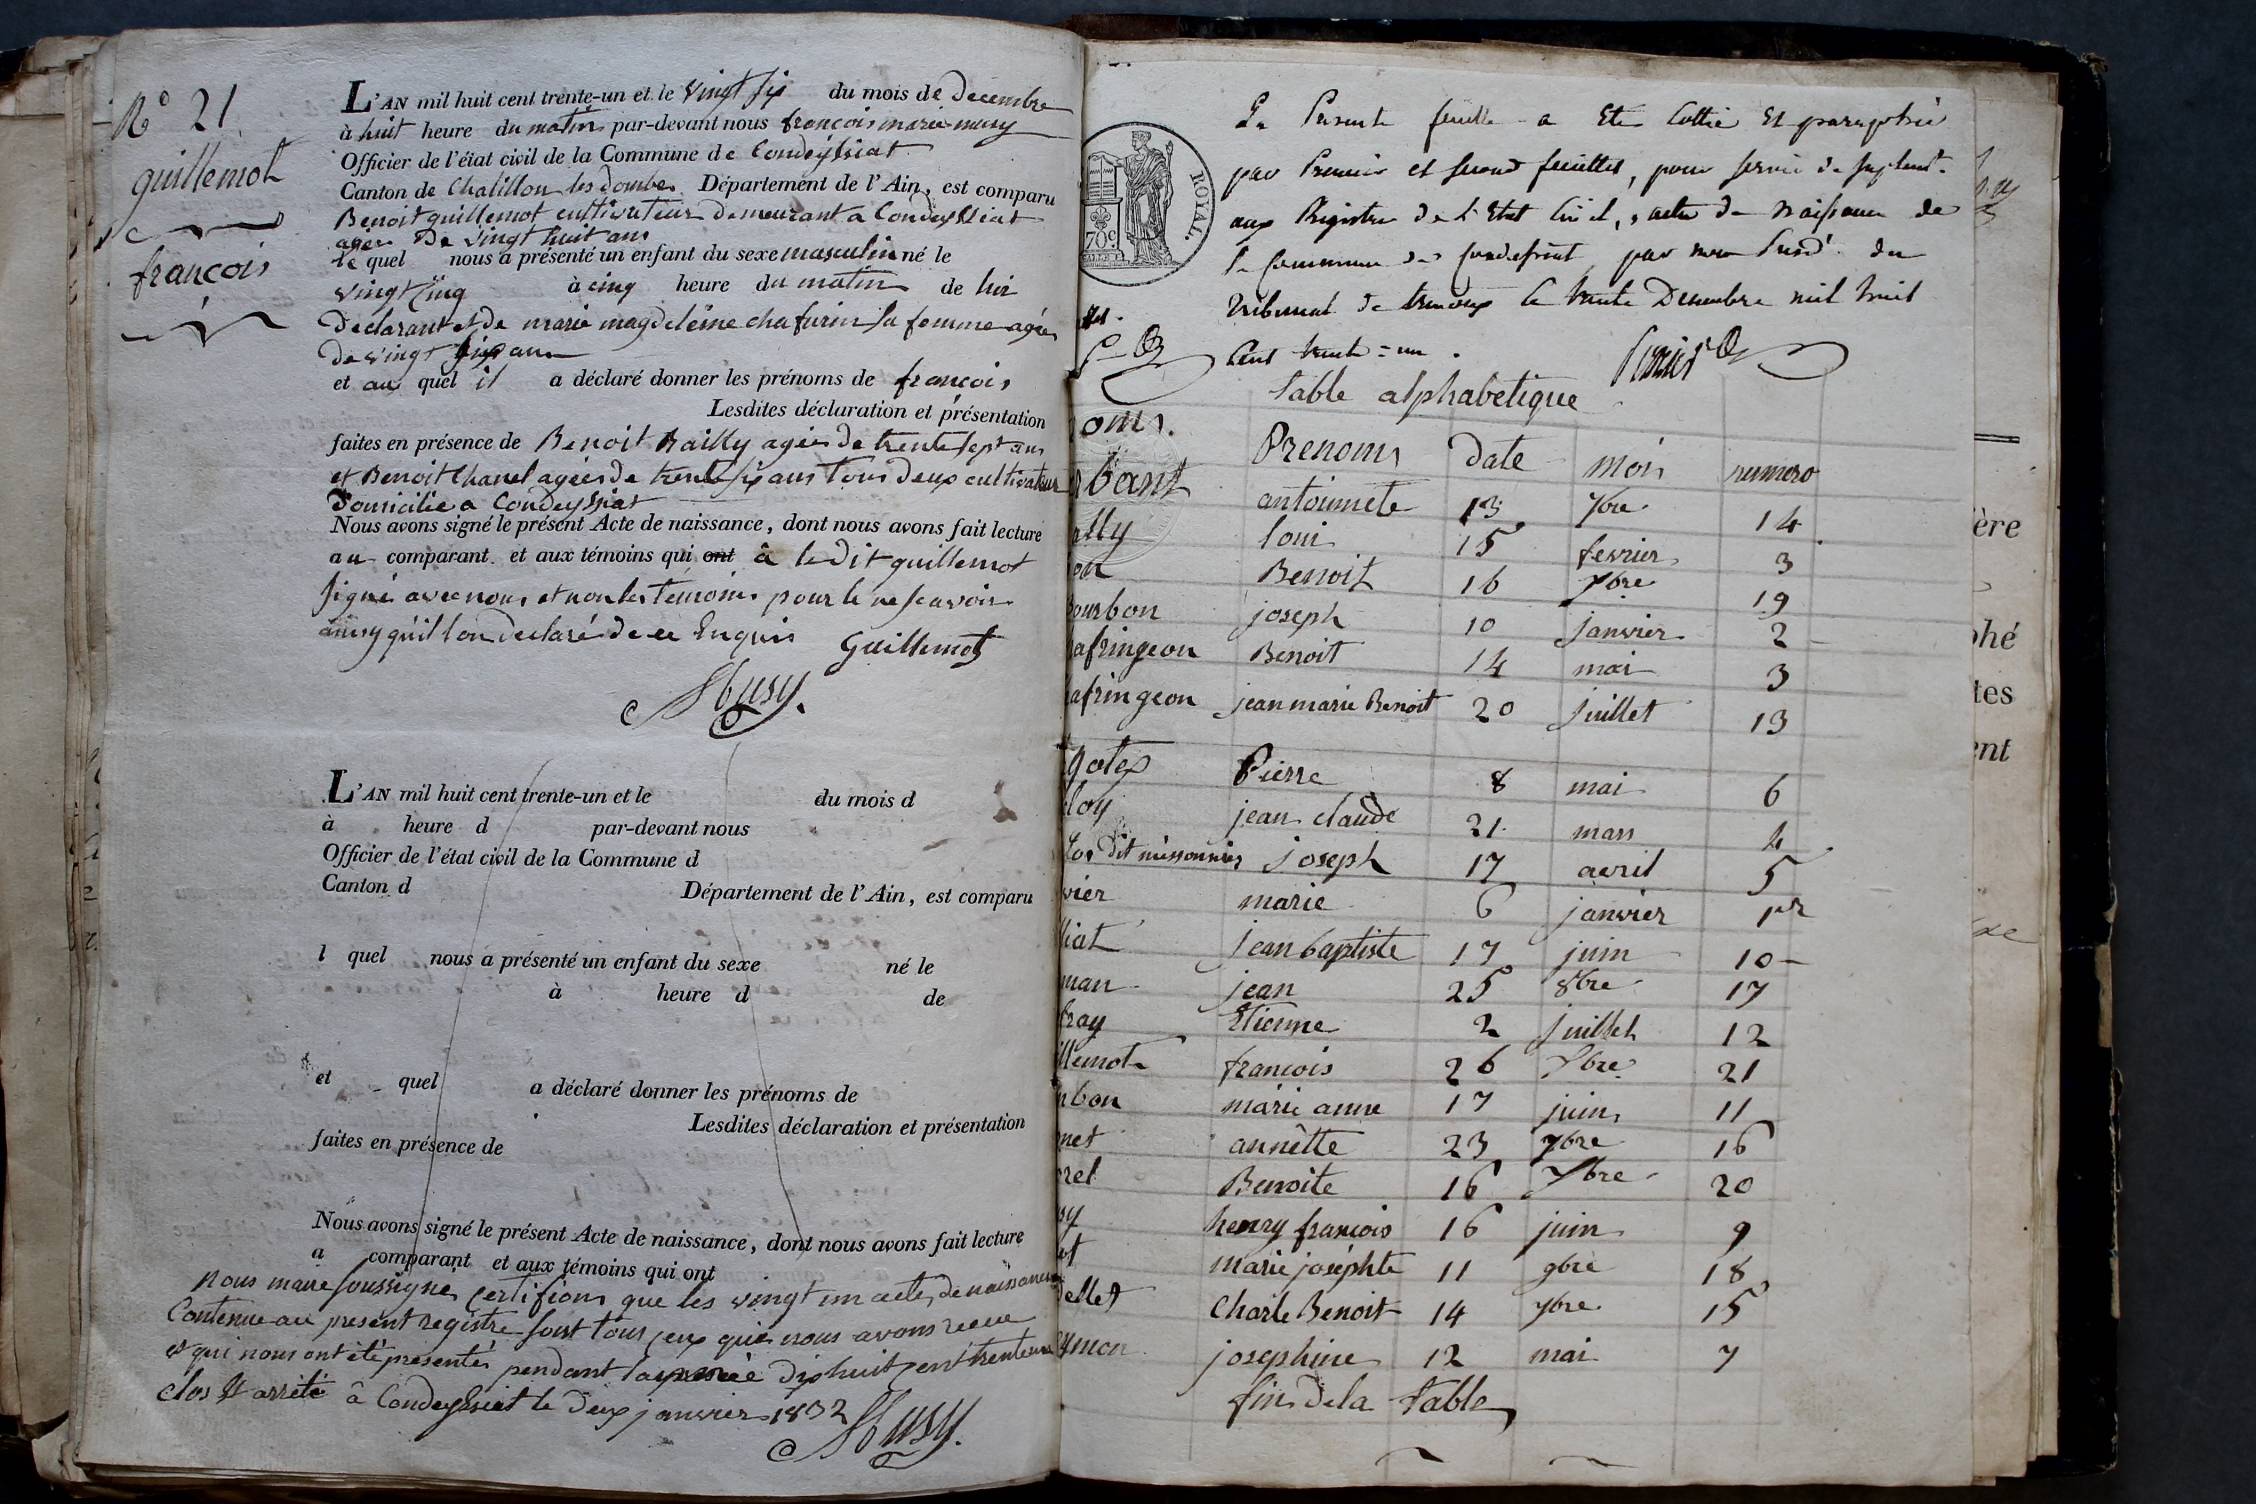 N° 21
guillemot
françois
L'AN mil huit cent trente-un et le vingt six du mois de decembre
à huit heure du matin par-devant nous françois marie musy
Officier de l'état civil de la Commune de Condeyssiat
Canton de Chatillon les dombes Département de l'Ain, est comparu
Benoit guillemot cultivateur demeurant a Condeyssiat
agée De vingt huit ans
le quel nous a présenté un enfant du sexe masculin né le
vingt cinq à cinq heure du matin de lui
declarant et de marie magdeleine chafurin sa femme agée
de vingt six ans
et au quel il a déclaré donner les prénoms de françois
Lesdites déclaration et présentation
faites en présence de Benoit Bailly agée de trente sept ans
et Benoit Chanel agées de trente six ans tous deux cultivateur
Domicilie a Condeyssiat
Nous avons signé le présent Acte de naissance, dont nous avons fait lecture
au comparant et aux témoins qui ont à le dit guillemot
signé avec nous et non les temoins pour le ne scavoir
ainsy qu'il l'on declaré de ce Enquis Guillemot
Musy.
L'AN mil huit cent trente-un et le du mois d
à heure d par-devant nous
Officier de l'état civil de la Commune d
Canton d Département de l'Ain, est comparu
l quel nous a présenté un enfant du sexe né le
à heure d de
et quel a déclaré donner les prénoms de
Lesdites déclaration et présentation
faites en présence de
Nous avons signé le présent Acte de naissance, dont nous avons fait lecture
a comparant et aux témoins qui ont
Nous maire soussigné certifions que les vingt un acte de naissance
Contenue au present registre sont tous ceux que nous avons recue
et qui nous ont été presentés pendant l'année dix huit cent trente une
clos et arrêté à Condeyssiat le deux janvier 1832
Musy.
ROYAL.
70c
La Presente feuille a Eté Cottée Et paraphée
par Premier et second feuillets, pour servir de suplement
aux Registre de l'Etat Civil, actes de Naissance de
la Commune de Condeissiat par nous Presid.t du
Tribunal de trevoux le trente Decembre mil huit
Cent trente=un.
Table alphabetique
oms. Prenoms Date mois numero
bant antoinnete 13 7bre 14
ally loui 15 fevrier 3
on Benoit 16 Xbre 19
ourbon joseph 10 janvier 2
afringeon Benoit 14 mai 3
afringeon jean marie Benoit 20 juillet 13
gotex Pierre 8 mai 6
loy jean claude 21 mars 4
los dit missonnier joseph 17 avril 5
vier marie 6 janvier 1er
liat jean baptiste 17 juin 10
man jean 25 8bre 17
fray Etienne 2 juillet 12
llemot françois 26 Xbre 21
nbon marie anne 17 juin 11
net annette 23 7bre 16
rel Benoite 16 Xbre 20
sy henry francois 16 juin 9
et marie josephte 11 9bre 18
dellet Charle Benoit 14 7bre 15
ymon josephine 12 mai 7
fin de la Table
ère
phé
tes
ent